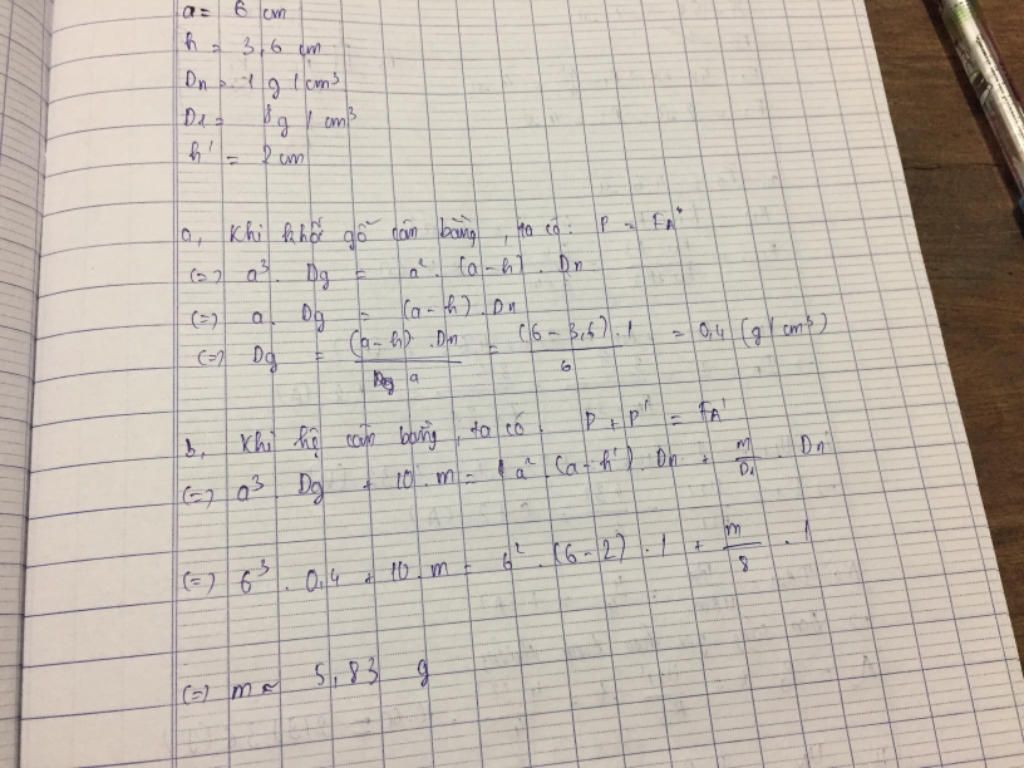 a = 6 cm
h = 3,6 cm
Dn = 1 g / cm³
D1 = 8g / cm³
h' = 2 cm
a, Khi khối gỗ cân bằng, ta có: P = FA
(=) a³. Dg = a². (a-h) . Dn
(=) a. Dg = (a-h) . Dn
(=) Dg = (a-h) .Dn / a = (6-3,6) . 1 / 6 = 0,4 (g/cm³)
b, Khi hệ cân bằng, ta có. P + P' = FA'
(=) a³. Dg + 10.m = a². (a-h') . Dn + m/D1 . Dn
(=) 6³. 0,4 + 10.m = 6². (6-2) . 1 + m/8 . 1
(=) m ≈ 5,83 g